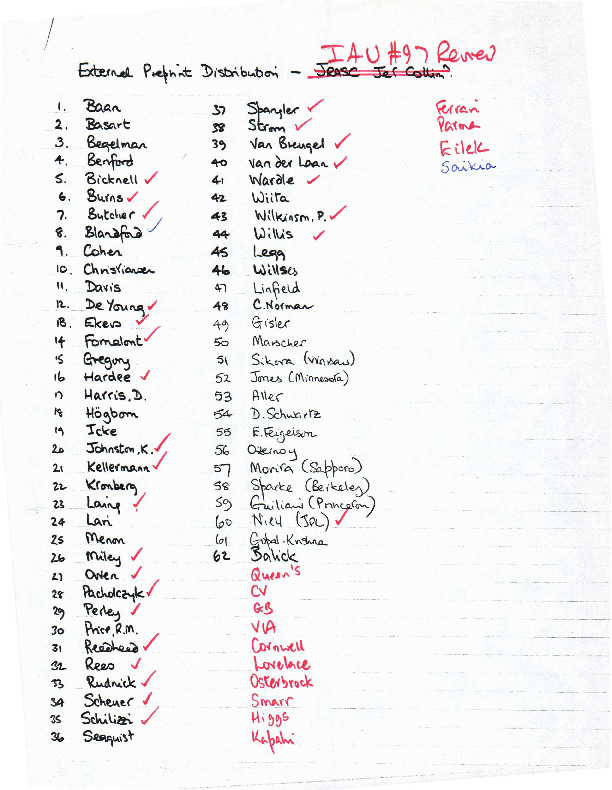 IAU #97 Review
External Preprint Distribution – JRASC Jet Collim?
1. Baan
2. Basart
3. Begelman
4. Benford
5. Bicknell ✓
6. Burns ✓
7. Butcher ✓
8. Blandford ✓
9. Cohen
10. Christiansen
11. Davis
12. De Young ✓
13. Ekers ✓
14 Fomalont ✓
15 Gregory
16 Hardee ✓
17 Harris, D.
18 Högbom
19 Icke
20 Johnston, K. ✓
21 Kellermann ✓
22 Kronberg
23 Laing ✓
24 Lari
25 Menon
26 Miley ✓
27 Owen ✓
28 Pacholczyk ✓
29 Perley ✓
30 Price, R.M.
31 Readhead ✓
32 Rees ✓
33 Rudnick ✓
34 Scheuer ✓
35 Schilizzi ✓
36 Seaquist
37 Spangler ✓
38 Strom ✓
39 Van Breugel ✓
40 Van der Laan ✓
41 Wardle ✓
42 Wiita
43 Wilkinson, P. ✓
44 Willis ✓
45 Legg
46 Willses
47 Linfield
48 C. Norman
49 Gisler
50 Marscher
51 Sikora (Warsaw)
52 Jones (Minnesota)
53 Aller
54 D. Schwartz
55 E. Feigelson
56 Ozernoy
57 Morita (Sapporo)
58 Sparke (Berkeley)
59 Guiliani (Princeton)
60 Niell (JPL) ✓
61 Gopal-Krishna
62 Balick
Queen's
CV
GB
VLA
Cornwell
Lovelace
Osterbrock
Smarr
Higgs
Kapahi
Ferrari
Parma
Eilek
Saikia